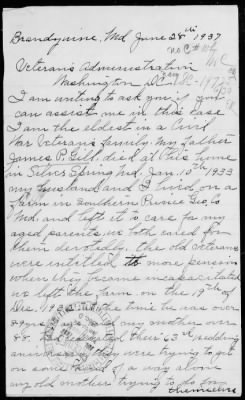 Brandywine, Md June 28th 1937
no C # Wife
Veterans Administration
Washington DC
I am writing to ask you if you
can assist me in this case
I am the eldest in a Civil
War Veterans family. My father
James P. Gill, died at his home
in Silver Spring Md, Jan 10th 1933
my husband and I lived on a
farm in Southern Prince Geo, Co
Md. and left it to care for my
aged parents, we both cared for
them devotedly. the old Veterans
were entitled to more pension
when they became incapacitated
we left the farm on the 19th of
Dec. at the time he was over
years old my mother over
88. had celebrated their 63rd wedding
anniversary they were trying to get
on some kind of a way alone
my old mother trying to do for
themselves